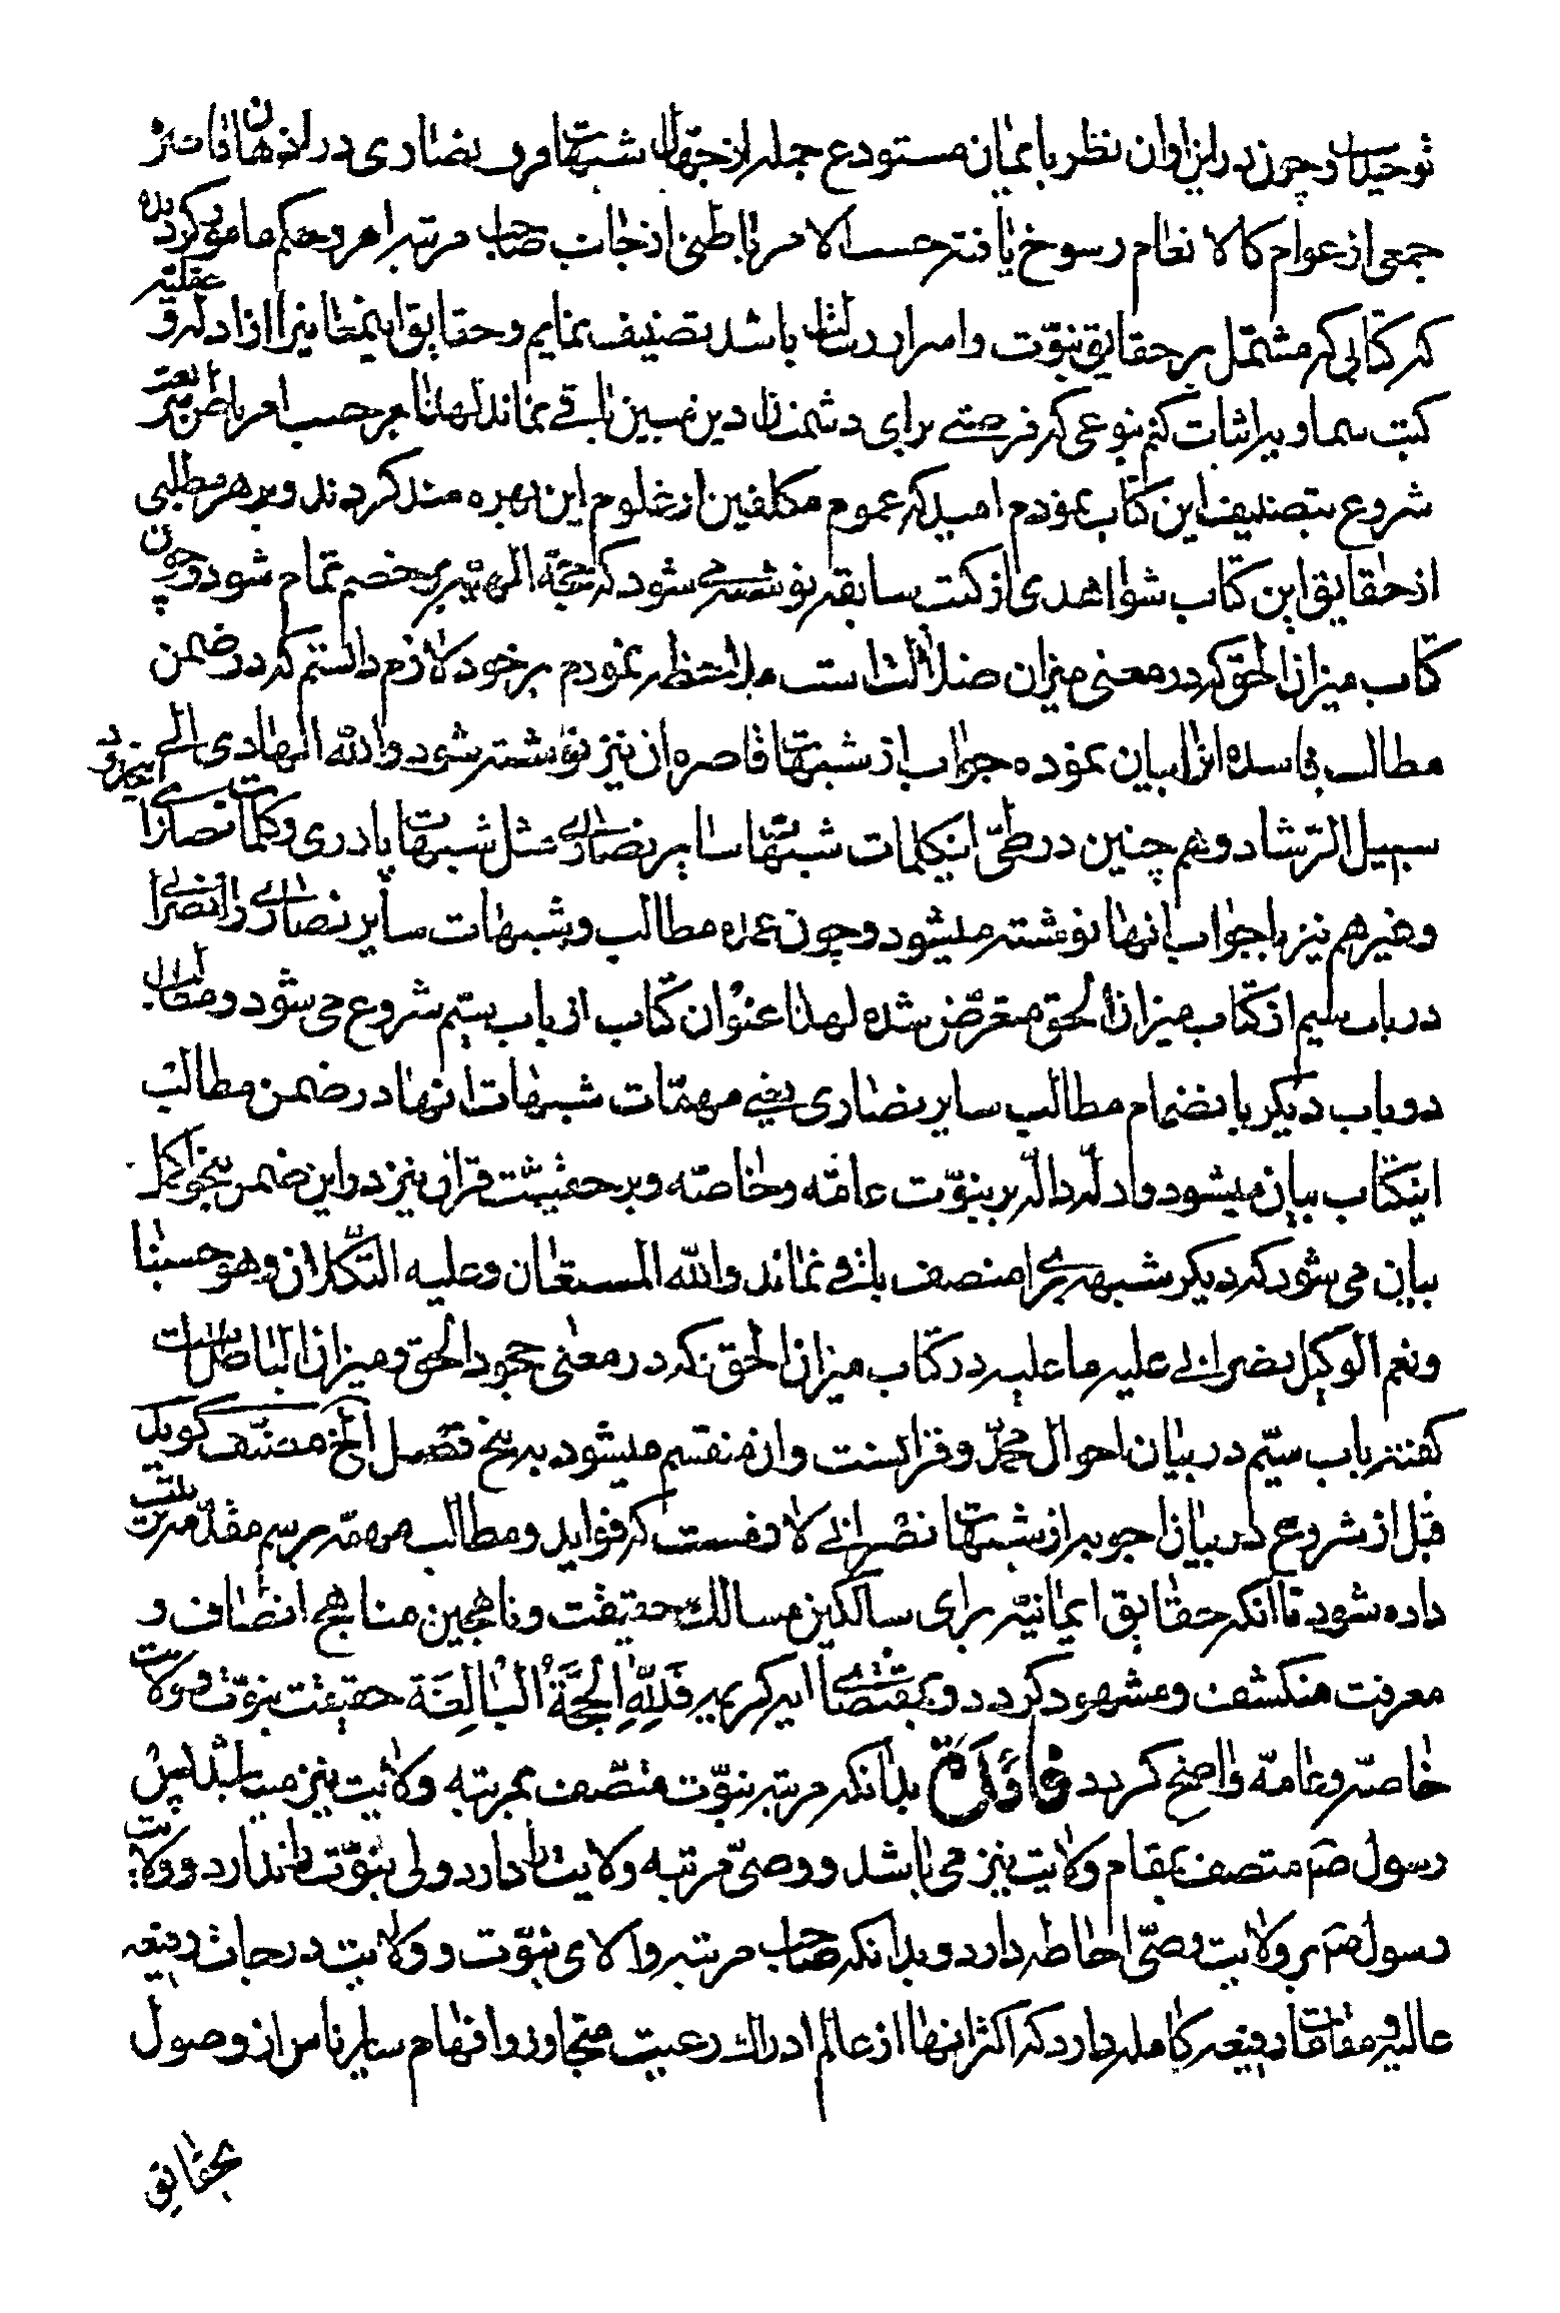 توحید است و چون در این اوان نظر بایمان مستودع جمله از جهال شبهات فرق نصاری در اذهان ناقصه
جمعی از عوام کالانعام رسوخ یافته حسب الامر باطنی از جانب صاحب مرتبه امر و حکم مامور گردیده
که کتابی که مشتمل بر حقایق نبوّت و اسرار رسالت باشد تصنیف نمایم و حقایق اینمعانیرا از ادله عقلیّه و
کتب سماویه اثبات کنم بنوعی که فرصتی برای دشمنان دین مبین باقی نماند لهذا بر حسب امر باطن شریعت
شروع بتصنیف این کتاب نمودم امید که عموم مکلفین از علوم این بهره مند کردند و بر هر مطلبی
از حقایق این کتاب شواهدی از کتب سابقه نوشته می شود که حجّة الهیّه بر خصم تمام شود و چون
کتاب میزان الحق که در معنی میزان ضلالت است ملاحظه نمودم بر خود لازم دانستم که در ضمن
مطالب فاسده انرا بیان نموده جواب از شبهات قاصره ان نیز نوشته شود والله الهادی الی
سبیل الرّشاد و هم چنین در طیّ اینکلمات شبهات سایر نصاری مثل شبهات پادری و کلمات نصاری
و غیرهم نیز با جواب انها نوشته میشود و چون عمده مطالب و شبهات سایر نصاری را نصرانی
در باب سیم از کتاب میزان الحق متعرّض شده لهذا عنوان کتاب از باب سیّم شروع می شود و مطالب
دو باب دیکر بانضمام مطالب سایر نصاری یعنی مهمّات شبهات انها در ضمن مطالب
اینکتاب بیان میشود و ادلّه دالّه بر نبوّت عامّه و خاصّه و بر حقیّت قران نیز در این ضمن بنحو اکمل
بیان می شود که دیکر شبهه برای منصف باقی نماند والله المستعان وعلیه التکلان وهو حسبنا
ونعم الوکیل نصرانی علیه ما علیه در کتاب میزان الحق که در معنی جحود الحق و میزان الباطل است
کفته باب سیّم در بیان احوال محمّد و قرانست و ان منقسم میشود به پنج فصل الخ مصنّف کوید
قبل از شروع در بیان اجوبه از شبهات نصرانی لازمست که فواید و مطالب مهمّه برسم مقدّمه ترتیب
داده شود تا آنکه حقایق ایمانیّه برای سالکین مسالک حقیقت و ناهجین مناهج انصاف و
معرفت منکشف و مشهود کردد و بمقتضای ایه کریمه فَلِلّهِ الحُجَّةُ البالِغَة حقیقت نبوّت و ولایت
خاصّه و عامّه واضح کردد بدانکه مرتبه نبوّت متّصف بمرتبه ولایت نیز میباشد پس
رسول ص متصف بمقام ولایت نیز می باشد و وصیّ مرتبه ولایت را دارد ولی نبوّت را ندارد و ولایت
رسول ص بر ولایت وصیّ احاطه دارد و بدانکه صاحب مرتبه والای نبوّت و ولایت درجات رفیعه
عالیه و مقامات رفیعه کامله دارد که اکثر انها از عالم ادراک رعیت متجاوز و افهام سایر ناس از وصول
بحقایق